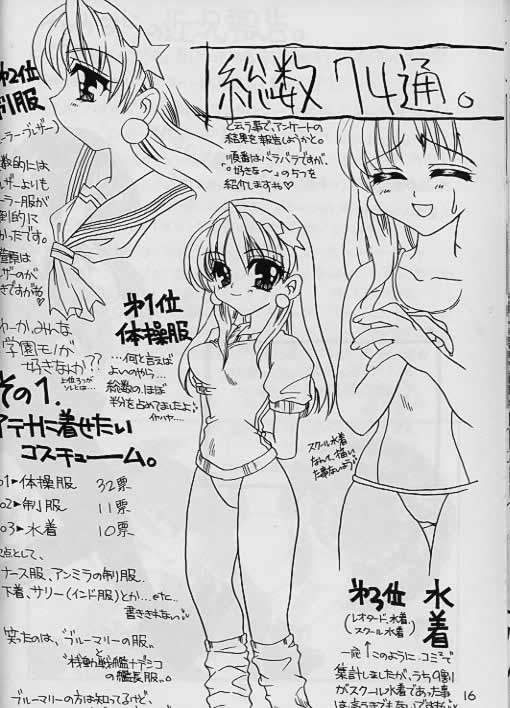 総数 74通。
と云う事で、アンケートの
結果を報告しようかと。
順番はバラバラですが、
"好きな〜"のうつを
紹介しますね♡
第2位
制服
(セーラー・ブレザー)
数的には
ブレザーよりも
セーラー服が
圧倒的に
多かったです。
ブレザーのが
好きですが
みんな
学園モノが
好きなのか??
第1位
体操服
…何と言えば
よいのやら…
総数の、ほぼ
半分を占めてましたよ
その1.
アテナに着せたい
コスチューム。
01▶体操服 32票
02▶制服 11票
03▶水着 10票
次点として、
ナース服、アンミラの制服…
下着、サリー(インド服)とか…etc…
書ききれない
笑ったのは、"ブルーマリーの服"
と
"機動戦艦ナデシコ
の艦長服"。
ブルーマリーの方は知ってるけど、
スクール水着
なんて、描い
た事ないよう
第3位 水着
(レオタード、水着、)
(スクール水着)
一応↑このように、コミで
集計しましたが、うち9割
がスクール水着であった事
は言うまでもないですね
16